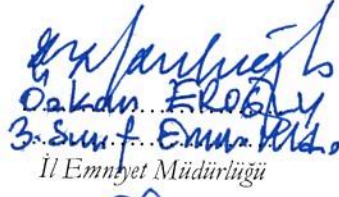 Özkan EROĞLU
3. Sınıf Emn. Müd.
İl Emniyet Müdürlüğü